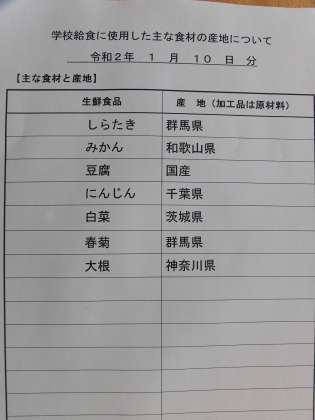 学校給食に使用した主な食材の産地について
令和2年 1 月 10 日 分
【主な食材と産地】
生鮮食品 産 地（加工品は原材料）
しらたき 群馬県
みかん 和歌山県
豆腐 国産
にんじん 千葉県
白菜 茨城県
春菊 群馬県
大根 神奈川県